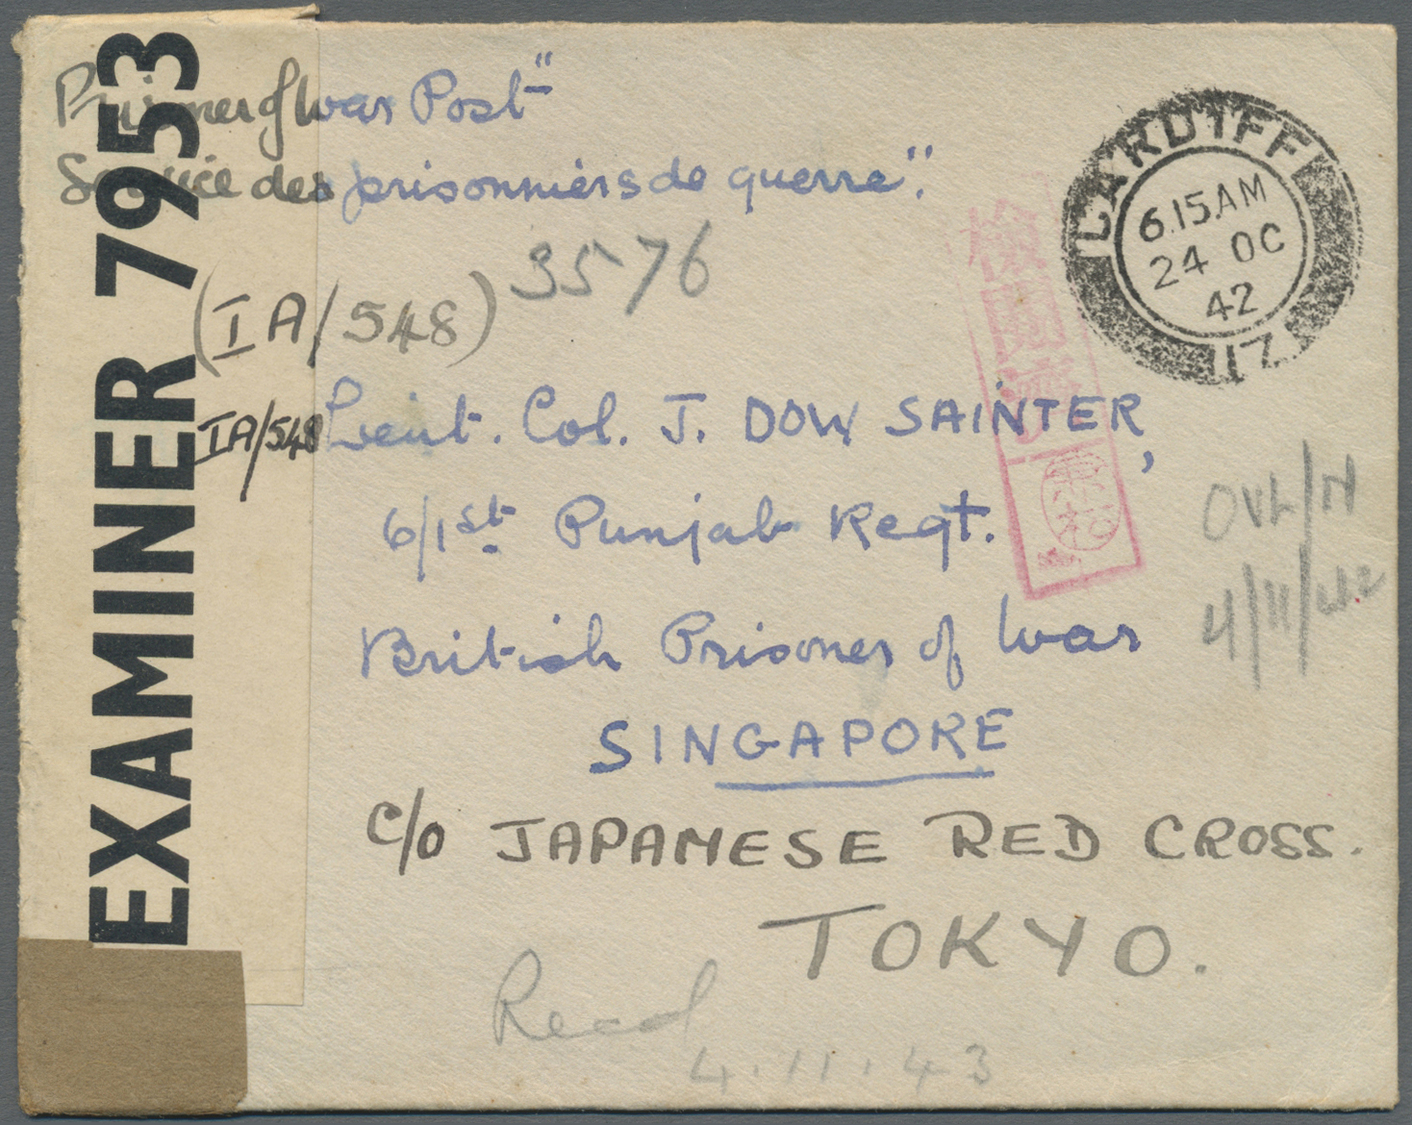 EXAMINER 7953
Prisoner of War Post"
Service des prisonniers de guerre".
CARDIFF
6.15 AM
24 OC
42
(IA/548) 3576
IA/548 Lieut. Col. J. DOW SAINTER,
6/1st Punjab Regt.
British Prisoner of War
SINGAPORE
c/o JAPANESE RED CROSS.
TOKYO.
檢閲濟
4/11/42
Recd
4.11.43